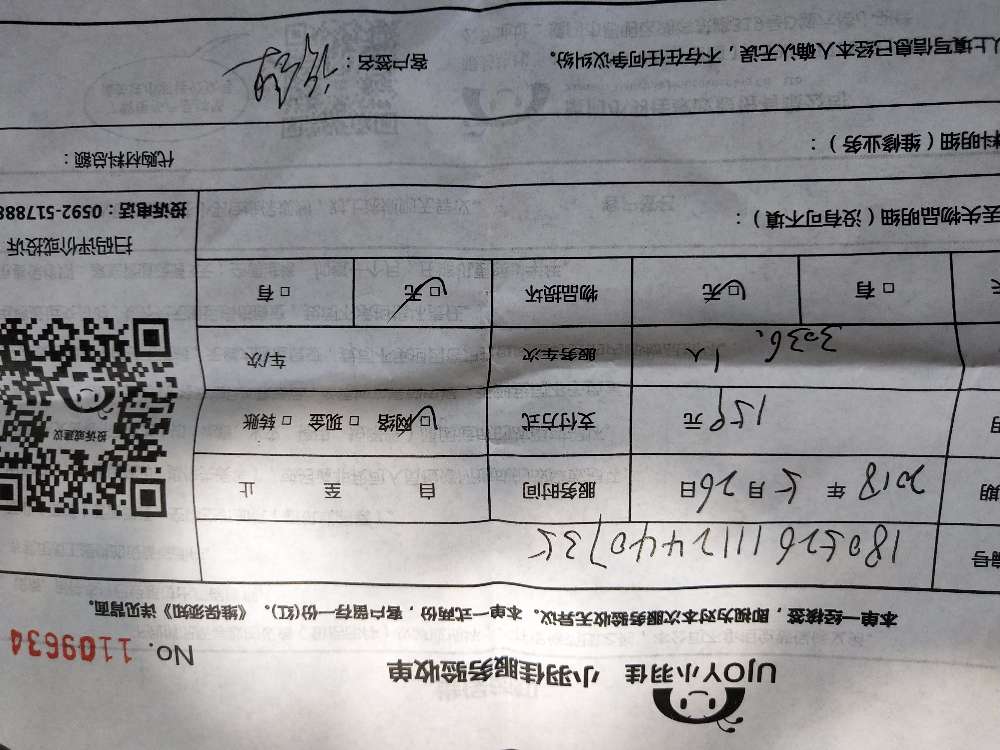 UJOY小羽佳 小羽佳服务验收单
No. 1109634
本单一经接签，即视为对本次服务验收无异议。本单一式两份，客户留存一份(红)。《维保须知》详见背面。
编号 180526111244073
期 2018 年 5 月 26 日 服务时间 自 至 止
159 元 支付方式 □ 网络 □ 现金 □ 转账
3036. 1 人 服务车次 车/次
□ 有 □ 无 物品损坏 □ 无 □ 有
投诉或建议
扫码评价或投诉
投诉电话：0592-517888
丢失物品明细（没有可不填）：
料明细（维修业务）：
代购材料总额：
上填写信息已经本人确认无误，不存在任何争议纠纷。 客户签名：